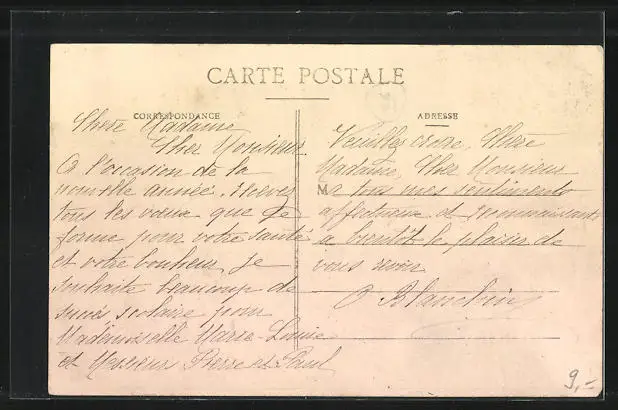 CARTE POSTALE
CORRESPONDANCE
Chère Madame,
Cher Monsieur.
A l'occasion de la
nouvelle année. Recevez
tous les vœux que je
forme pour votre santé
et votre bonheur. Je
souhaite beaucoup de
succès scolaire pour
Mademoiselle Marie-Louise
et Messieurs Pierre et Paul
ADRESSE
Veuillez croire, Chère
Madame, Cher Monsieur
M
a tous mes sentiments
affectueux et reconnaissants
a bientôt le plaisir de
vous revoir
9,-